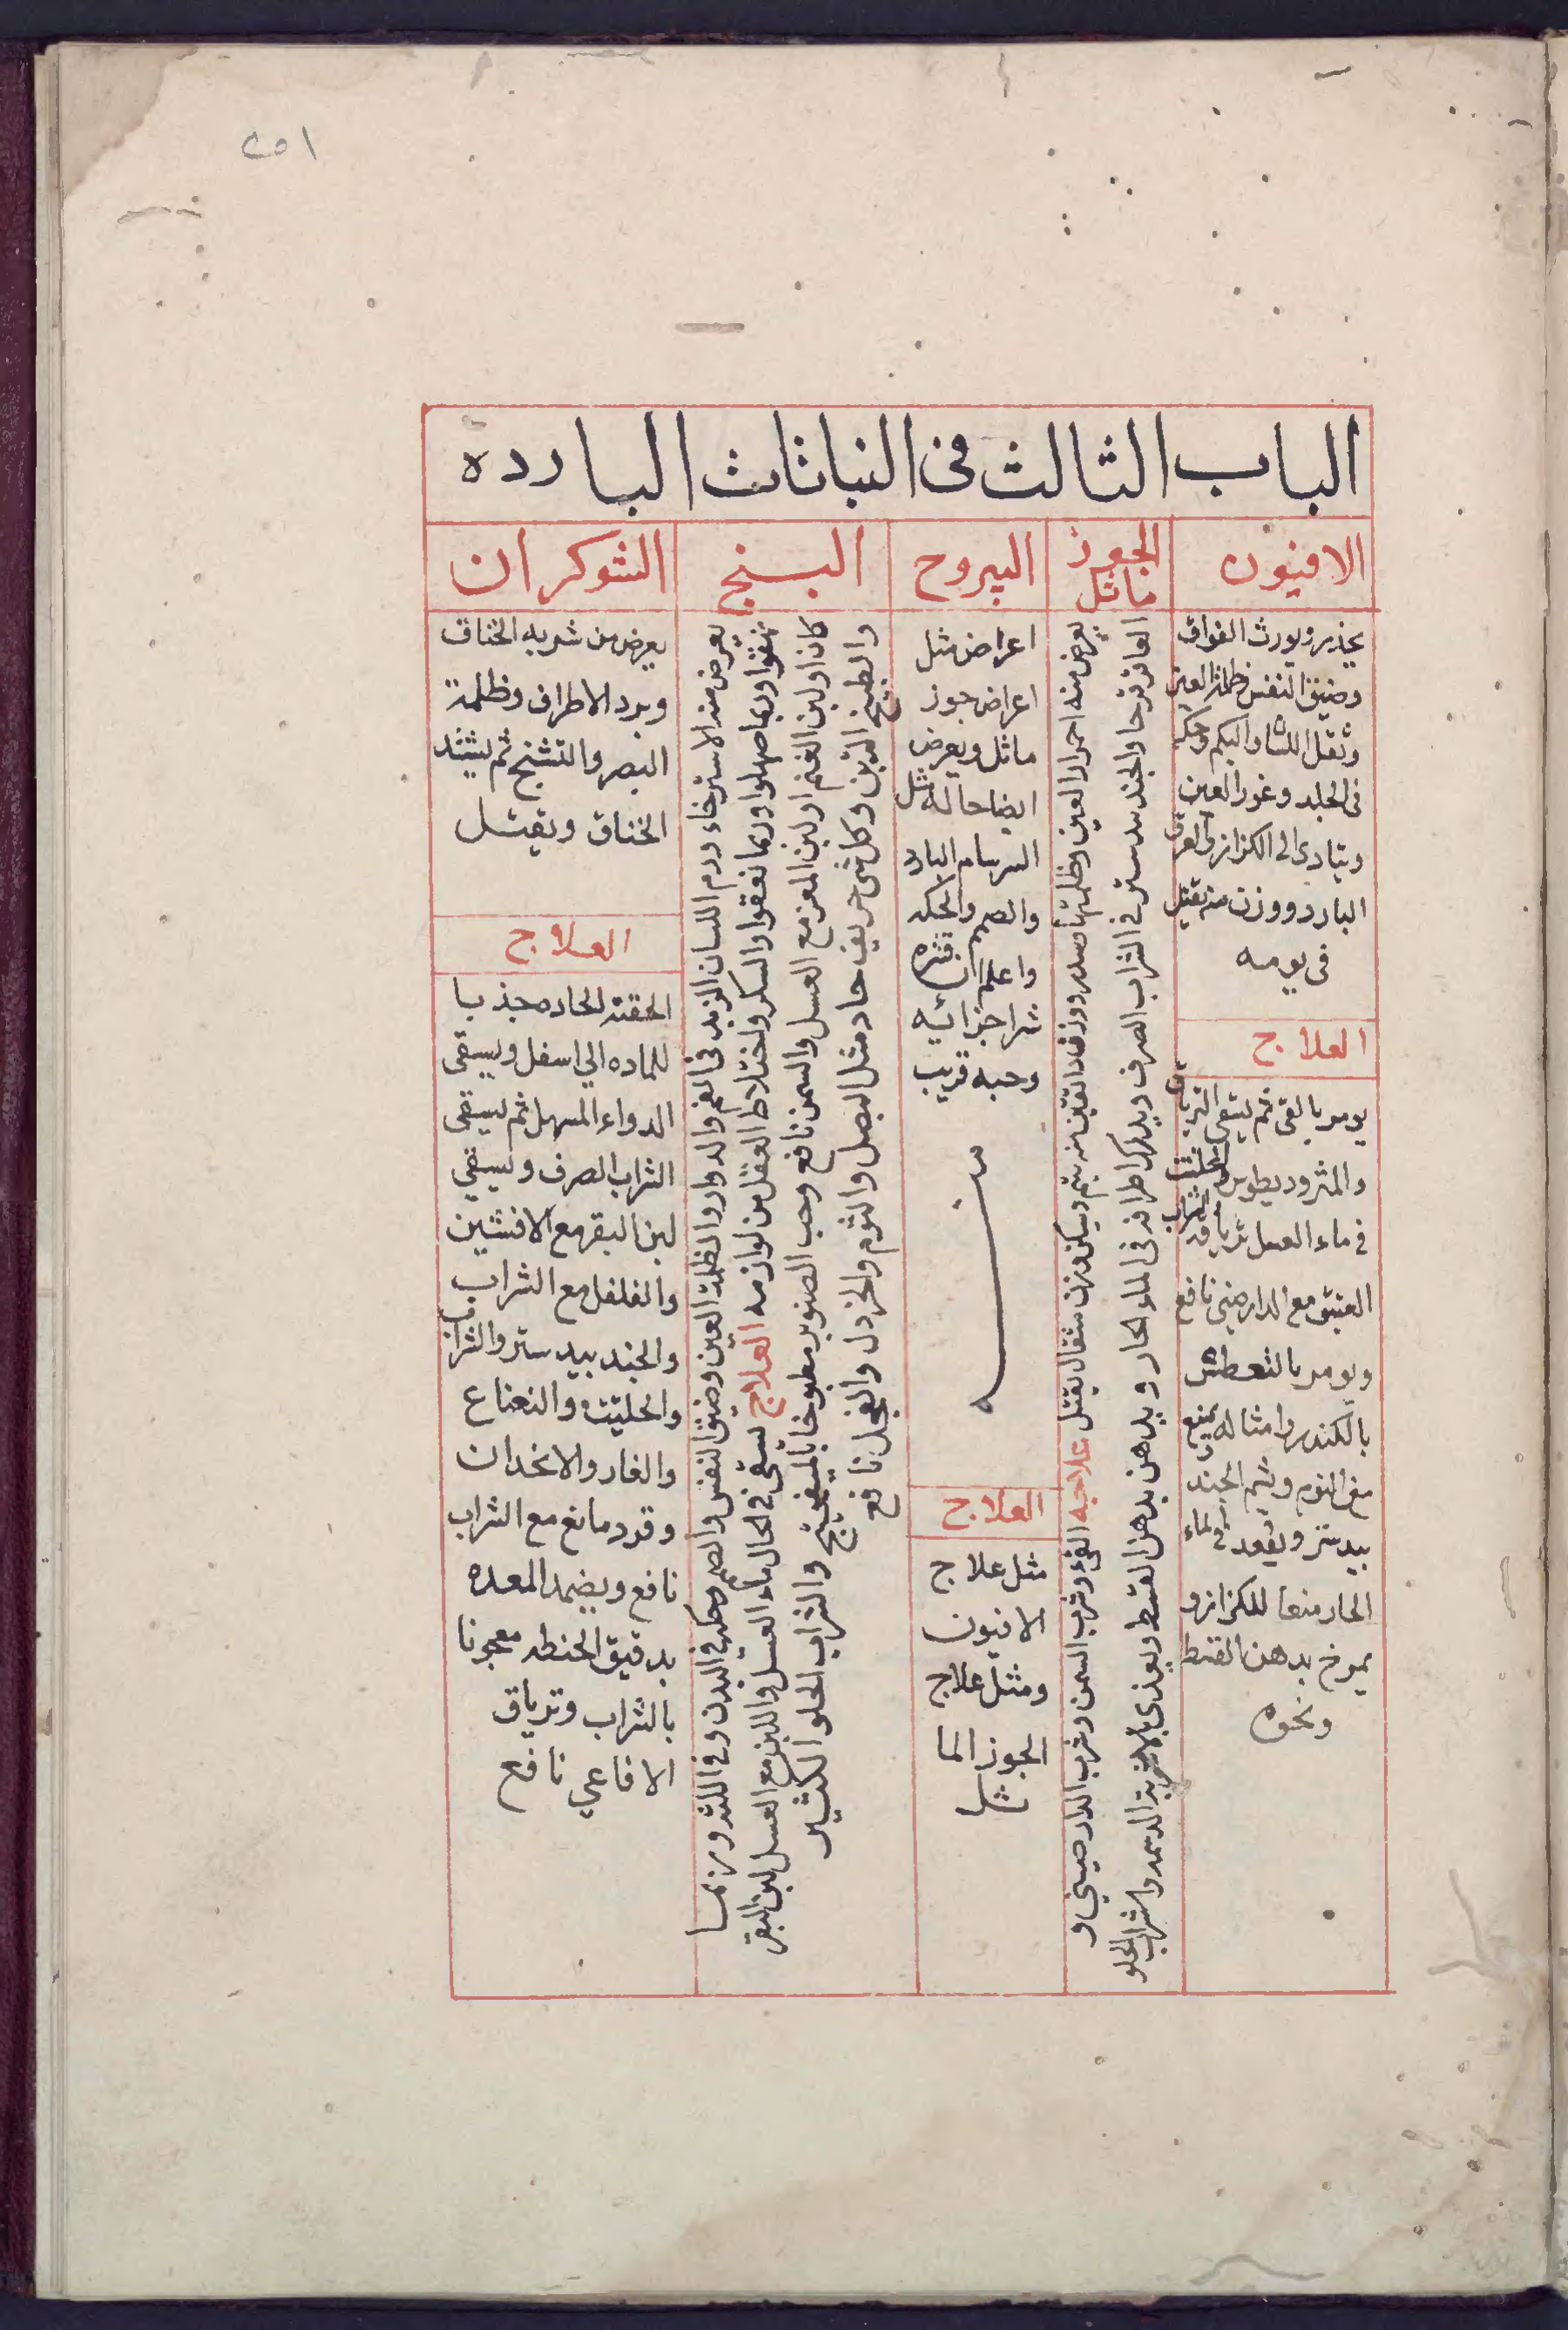 ٢٥١
الباب الثالث فى النباتات البارده
الافيون
يخدر ويورث الفواق
وضيق النفس وظلمة العين
وثقل اللسان والبكم وحكه
فى الجلد وغور العين
ويتادى الى الكزاز والعرق
البارد ووزن منه تقتل
فى يومه
العلاج
يومر بالقى ثم يسقى
والمثروديطوس
فى ماء العسل
العتيق مع الدارصينى نافع
ويومر بالتعطش
بالكندس وامثاله يمنع
من النوم ويشم الجند
بيدستر ويقعد فى الماء
الحار منعا للكزاز و
يمرخ بدهن القسط
ونحوه
الجوز ماثل
يعرض منه احمرار العين وظلمتها وسدر ووزن دانقين منه يتم ويسكن وزن مثقال يقتل علاجه القى وشرب السمن وشرب الدارصينى و
العاقرقرحا والجندبيدستر فى الشراب الصرف ويدلك اطرافه فى الماء الحار ويدهن بدهن القسط ويغذى بالاغذية الدسمه والشراب الحلو
اليبروح
اعراض مثل
اعراض جوز
ماثل ويعرض
ايضا حاله مثل
السرسام البارد
والصمم والحكه
واعلم ان قشره
شر اجزايه
وحبه قريب
منه
العلاج
مثل علاج
الافيون
ومثل علاج
الجوز الما
ثل
البنج
يعرض منه الاسترخاء ورم اللسان الزبد فى الفم والدوار والظلمة العين وضيق النفس والصمم وحكه فى البدن وفى اللثه وربما
نهقوا وربما صهلوا وربما نعقوا والسكر واختلاط العقل من لوازمه العلاج يسقى فى الحال ماء العسل واللبن مع العسل لبن البقر
كان او لبن الغنم او لبن المعز مع العسل والسمن نافع وحب الصنوبر مطبوخا بالميفختج والشراب الحلو الكثير
والطبيخ التين وكل شى حريف حاد مثل البصل والثوم والخردل والفجل نافع
الشوكران
يعرض من شربه الخناق
وبرد الاطراف وظلمة
البصر والتشنج ثم يشتد
الخناق ويقتل
العلاج
الحقنة الحاده جذبا
للماده الى اسفل ويسقى
الدواء المسهل ثم يسقى
الشراب الصرف ويسقى
لبن البقر مع الافسنتين
والفلفل مع الشراب
والجند بيدستر والشراب
والحلتيت والنعناع
والغار والانجدان
وقردمانغ مع الشراب
نافع ويضمد المعده
بدقيق الحنطه معجونا
بالشراب وترياق
الافاعى نافع